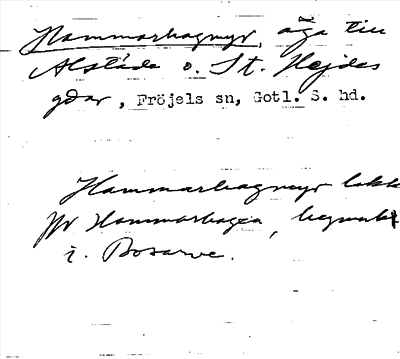 Hammarhagmyr, äga till
Alstäde o. St. Hejdes
gdar, Fröjels sn, Gotl. S. hd.
Hammarhagmyr
jfr Hammarhagen,
i Bosarve.